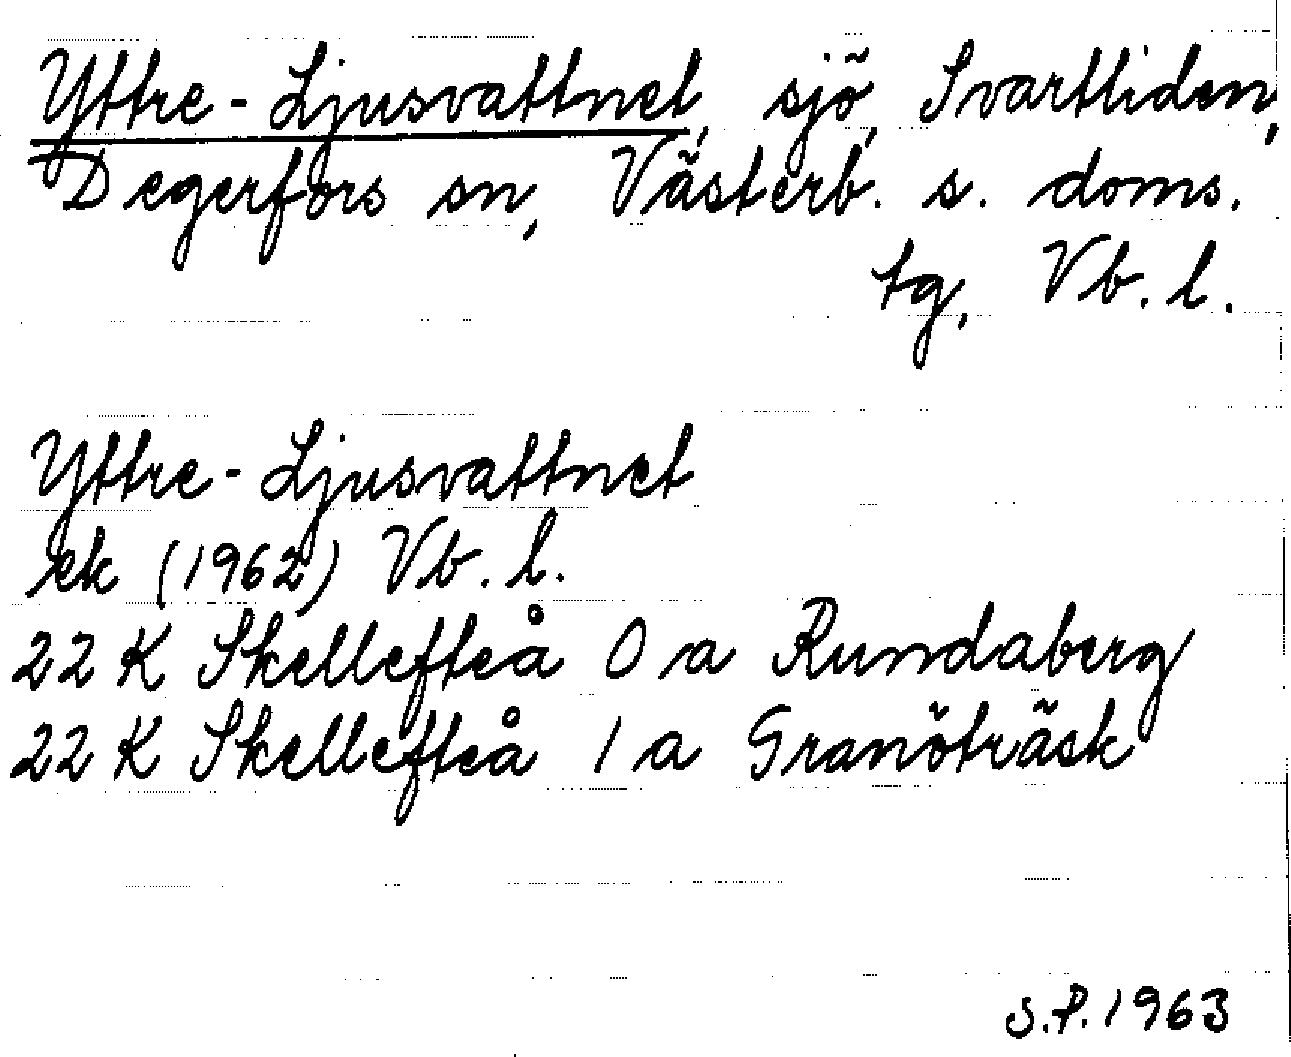 Yttre-Ljusvattnet, sjö, Svartliden,
Degerfors sn, Västerb. s. doms.
tg, Vb. l.
Yttre-Ljusvattnet
ek (1962) Vb. l.
22 K Skellefteå 0 a Rundaberg
22 K Skellefteå 1 a Granöträsk
S.P. 1963